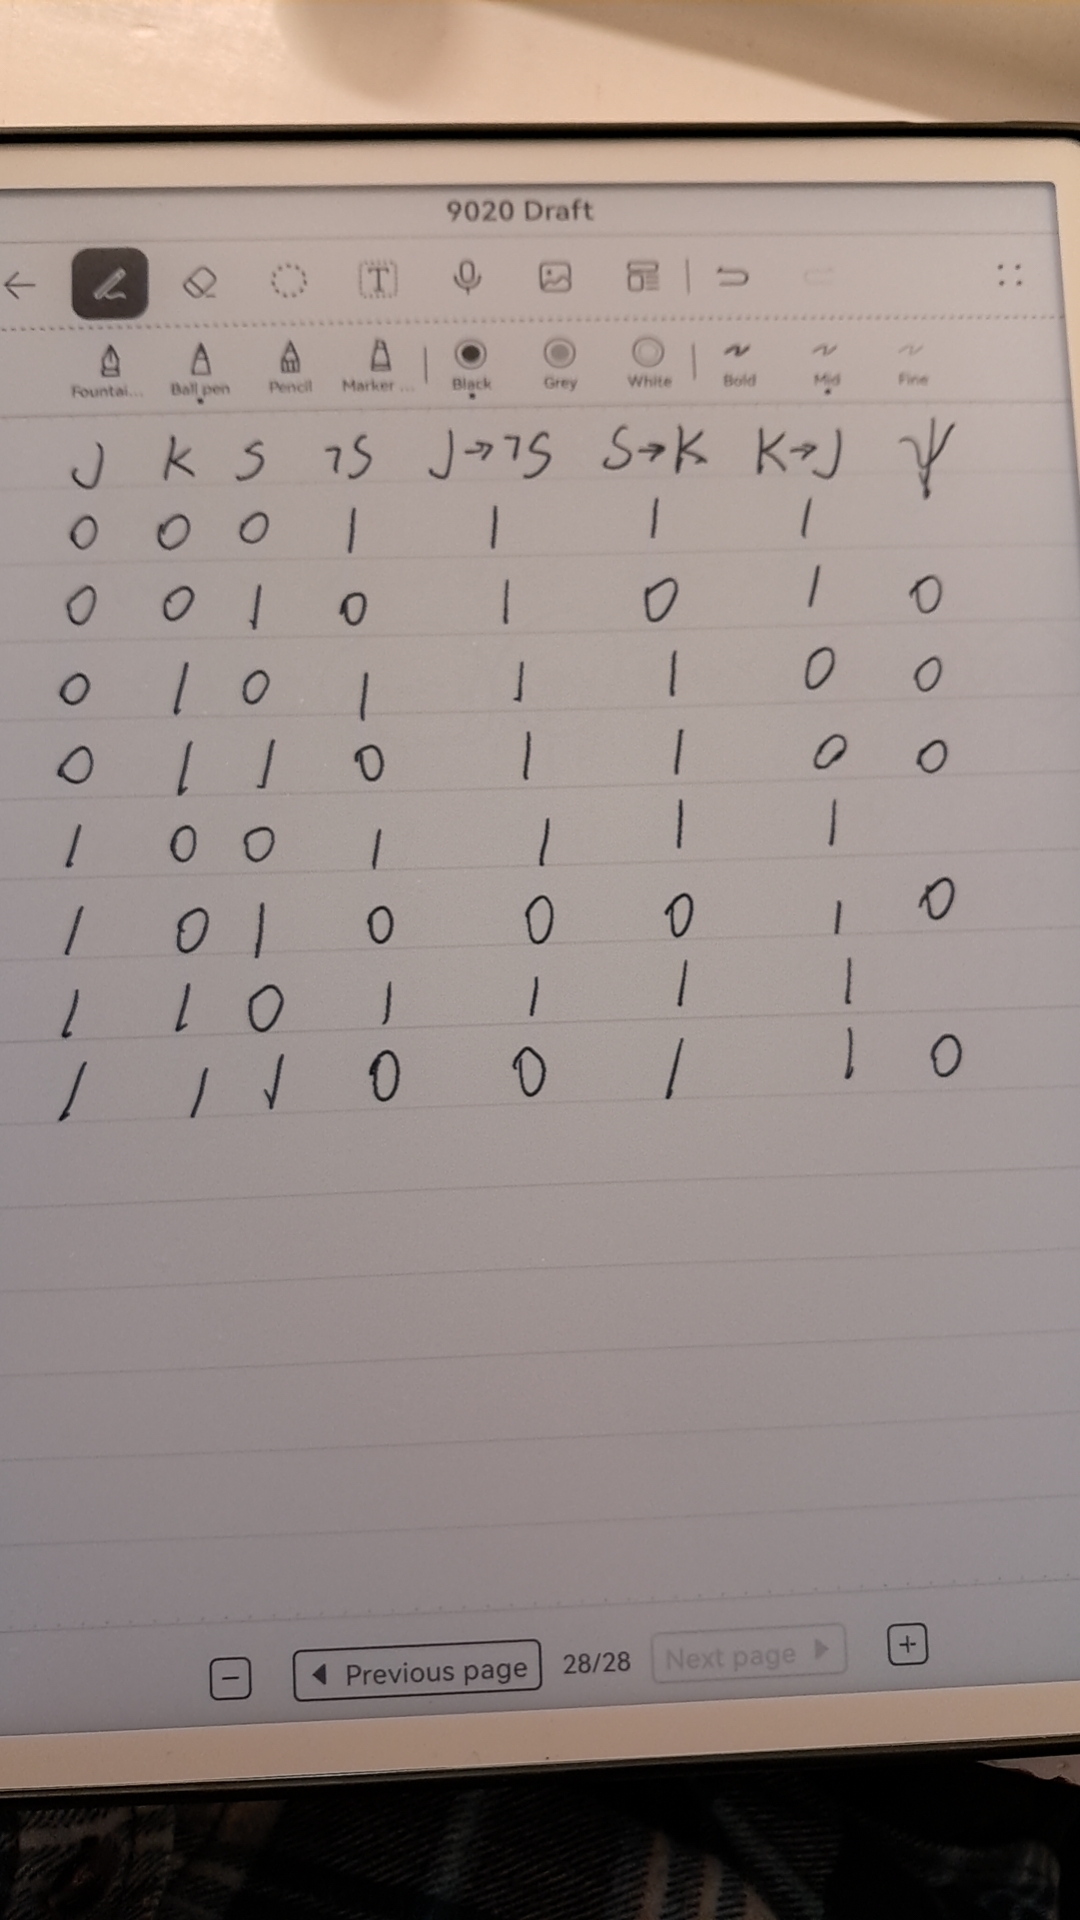 9020 Draft
Fountai... Ball pen Pencil Marker ... Black Grey White Bold Mid Fine
J K S ¬S J→¬S S→K K→J ψ
0 0 0 1 1 1 1
0 0 1 0 1 0 1 0
0 1 0 1 1 1 0 0
0 1 1 0 1 1 0 0
1 0 0 1 1 1 1
1 0 1 0 0 0 1 0
1 1 0 1 1 1 1
1 1 1 0 0 1 1 0
Previous page 28/28 Next page